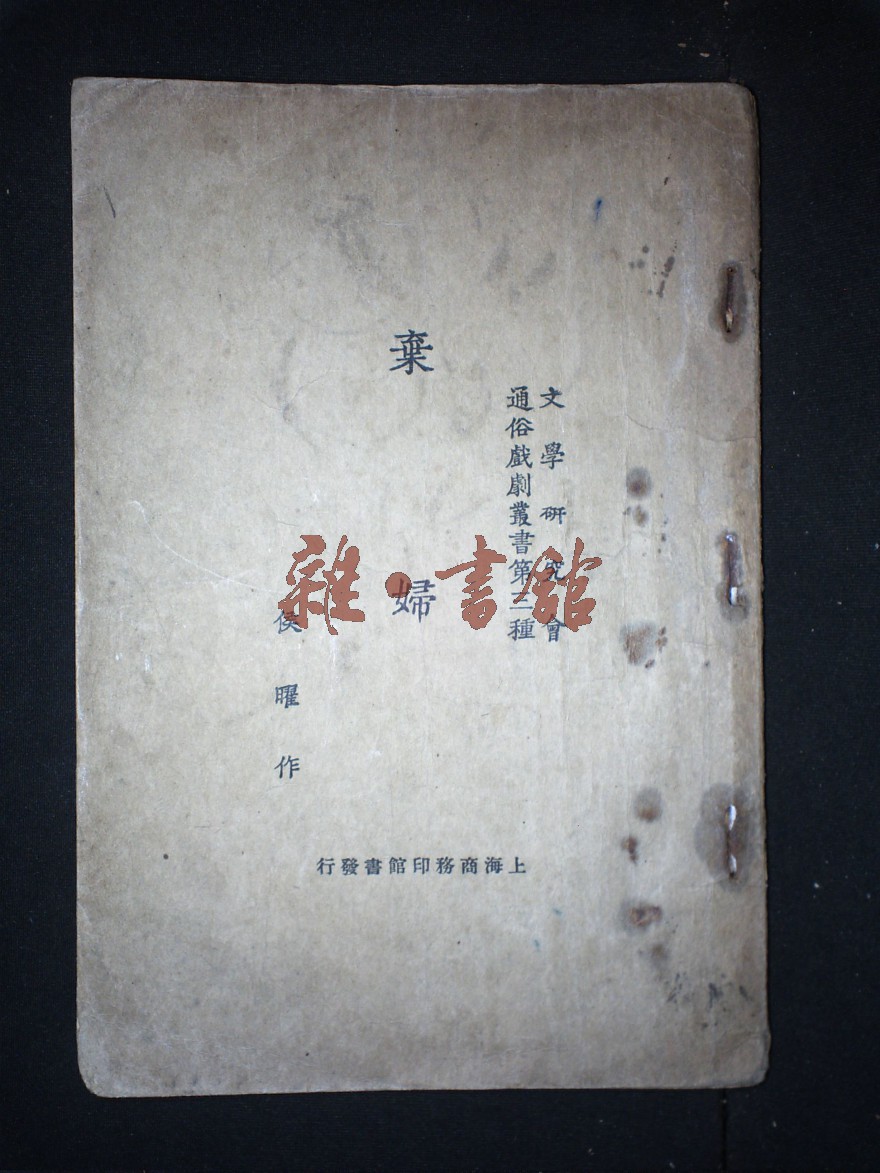 文學研究會
通俗戲劇叢書第三種
棄婦
侯曜作
上海商務印館書發行
雜·書館